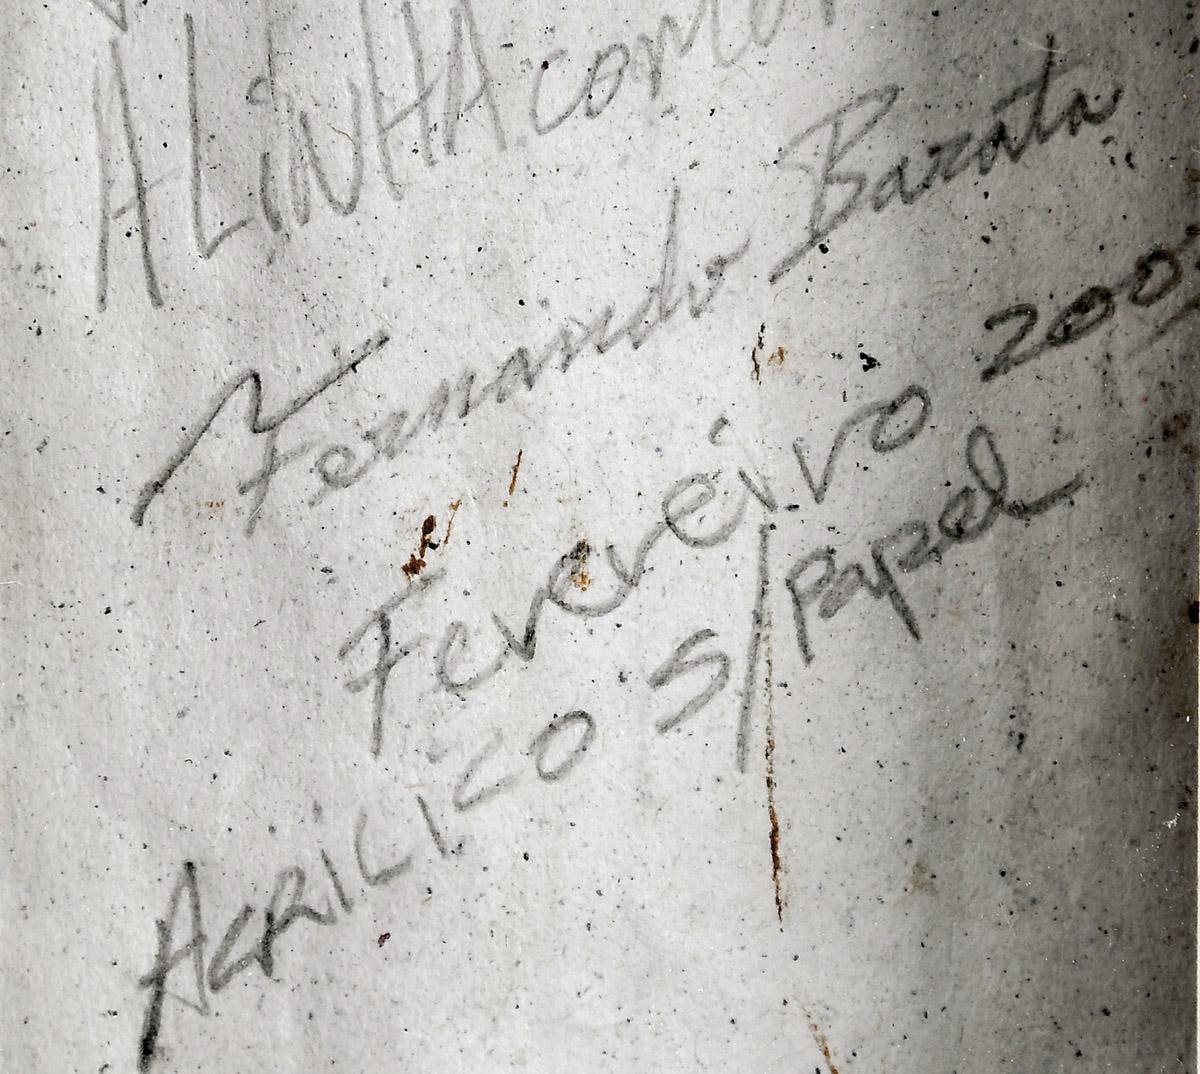 A LiNHA com
Fernando Barata
Fevereiro 200
ACRILICO S/Papel